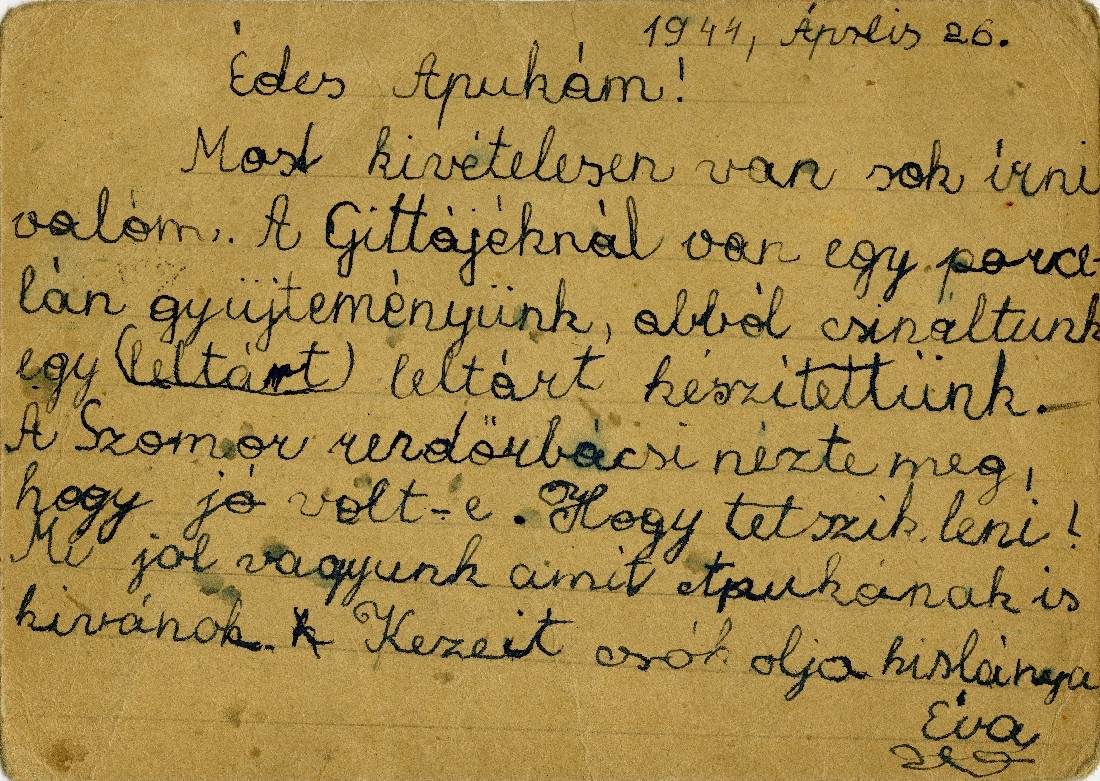 1944, Április 26.
Édes Apukám!
Most kivételesen van sok írni
valóm. A Gittájéknál van egy porce-
lán gyüjteményünk, abból csináltunk
egy (leltárt) leltárt készítettünk.
A Szomor rendőrbácsi nézte meg,
hogy jó volt-e. Hogy tetszik leni!
Mi jól vagyunk amit Apukának is
kivánok. Kezeit csókolja kislánya
Éva